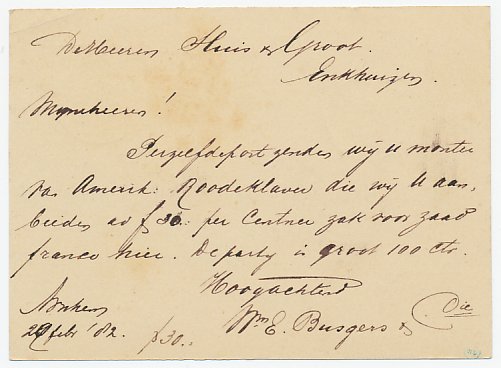 De Heeren Huis & Groot.
Enkhuizen.
Mijneheeren!
Perzelfdepost zenden wij U monter
van Amerik: Roodeklaver die wij U aan
bieden ad f 30.: per Centner zak voor zaad
franco hier. De party is groot 100 Ctr.
Hoogachtend
Arnhem
29 febr '82. f30.:
Wm. E. Busgers & Cie